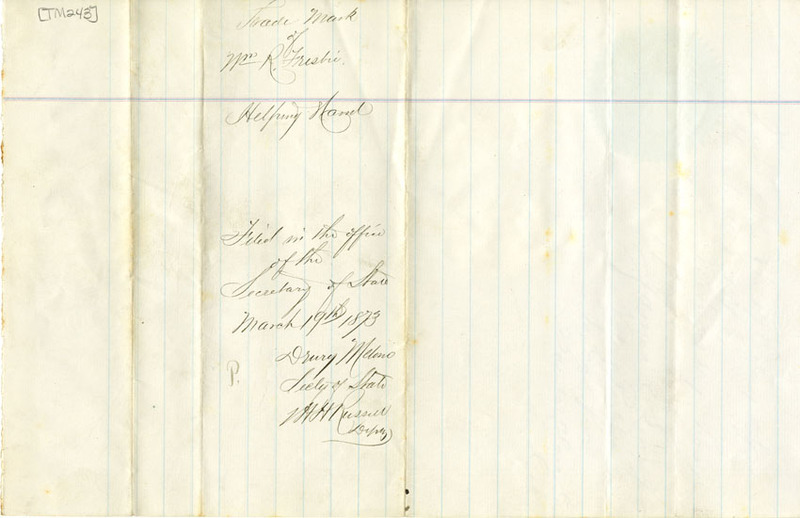 [TM243]
Trade Mark
of
Wm R. Frisbie.
Helping Hand
Filed in the office
of the
Secretary of State
March 19th 1873
Drury Melone
Secty of State
P.
Russell
Depty